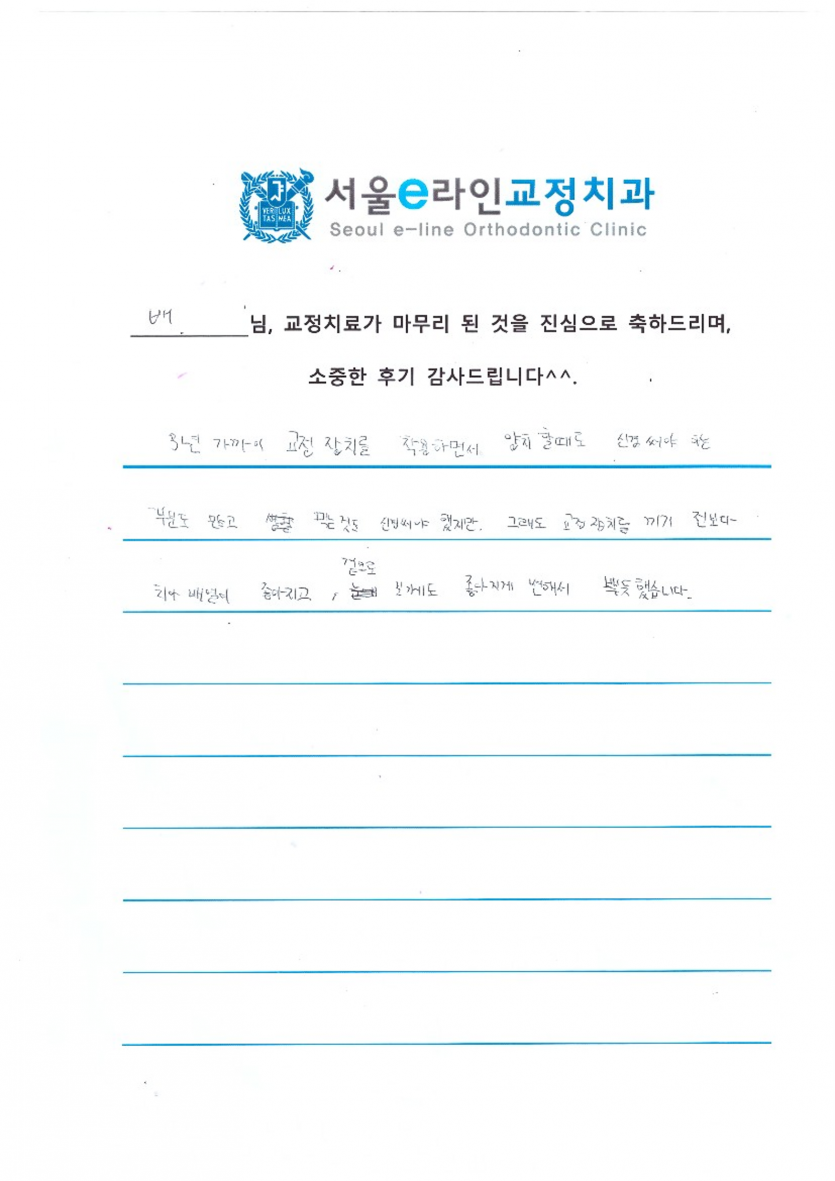 서울e라인교정치과
Seoul e-line Orthodontic Clinic
VERI LUX
TAS MEA
배 님, 교정치료가 마무리 된 것을 진심으로 축하드리며,
소중한 후기 감사드립니다^^.
3년 가까이 교정 장치를 착용하면서 양치 할때도 신경 써야 하는
부분도 많고 먹는 것도 신경써야 했지만, 그래도 교정 장치를 끼기 전보다
치아 배열이 좋아지고, 겉으로 보기에도 좋아지게 변해서 뿌듯했습니다.